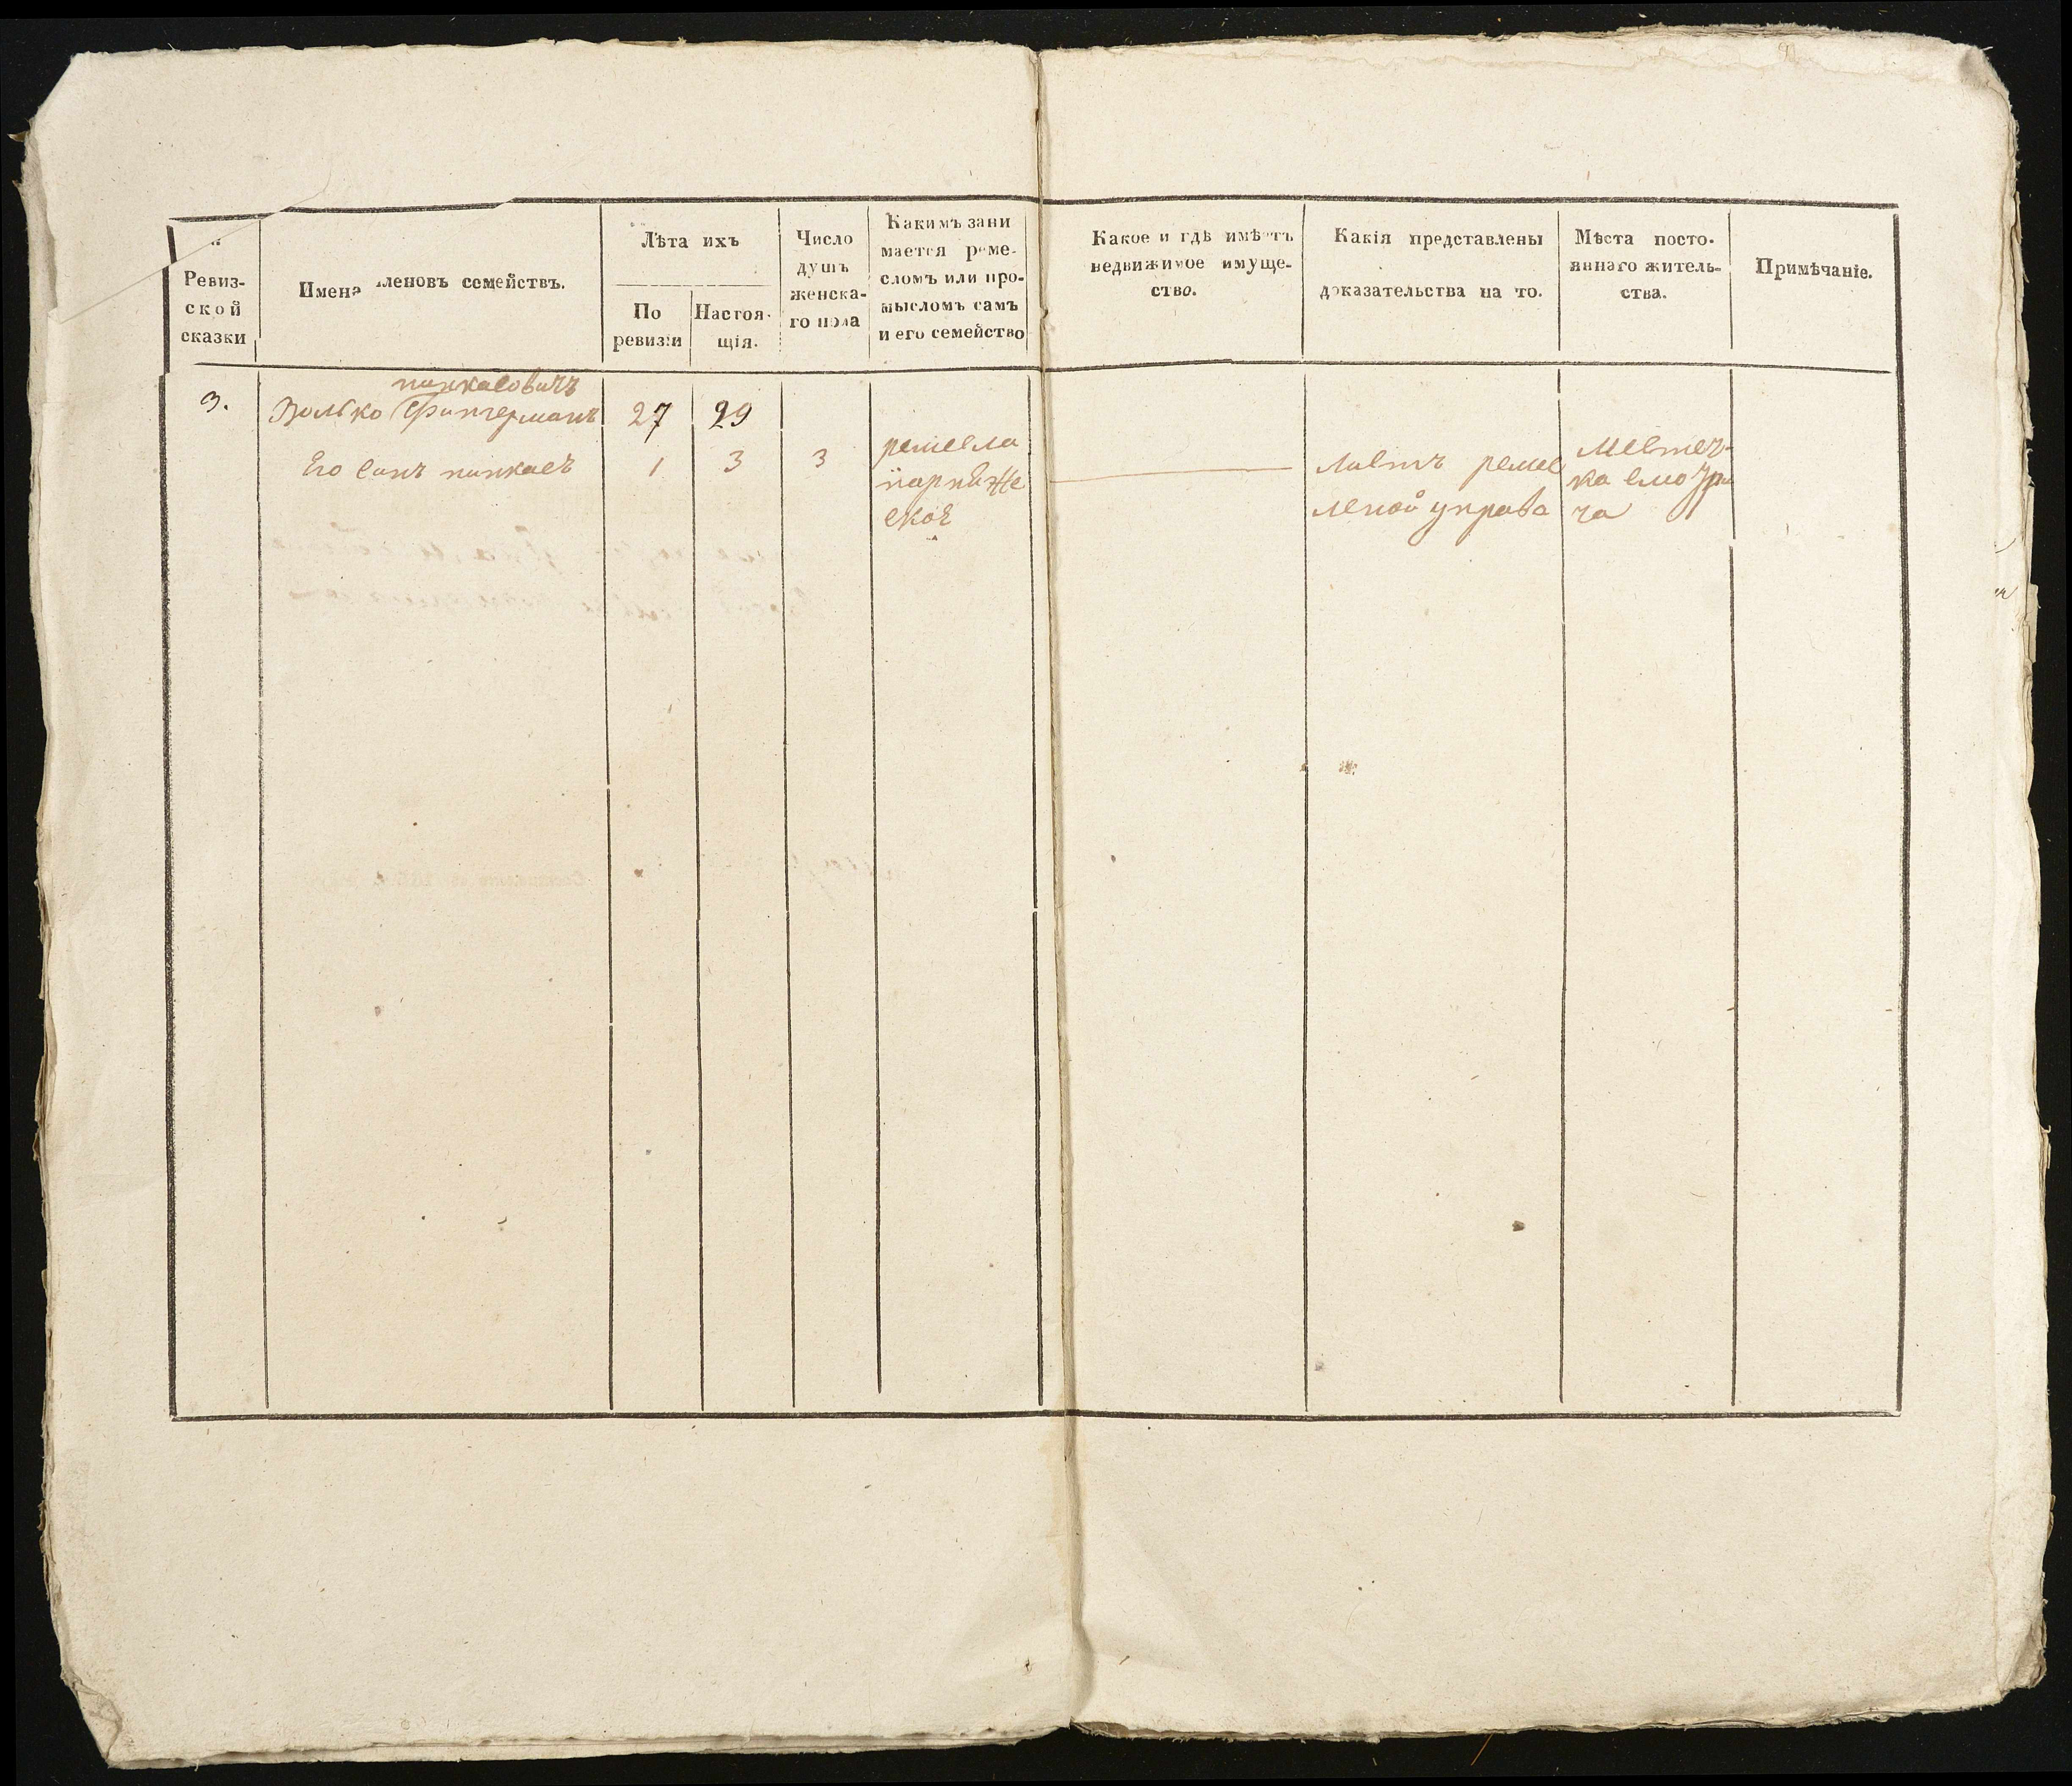 Ревиз-
ской
сказки
Имена членовъ семействъ.
Лѣта ихъ
По
ревизіи
Настоя-
щія.
Число
душъ
женска-
го пола
Какимъ зани
мается реме-
сломъ или про-
мысломъ самъ
и его семейство
Какое и гдѣ имѣетъ
недвижимое имуще-
ство.
Какія представлены
доказательства на то.
Мѣста посто-
яннаго житель-
ства.
Примѣчаніе.
пинкасовичъ
3. Волько Фингерманъ 27 29
Его Синъ пинкасъ 1 3 3
ремесла
скоѣ
Листъ ремес
леной управа
Местеч-
ка смотри
ча